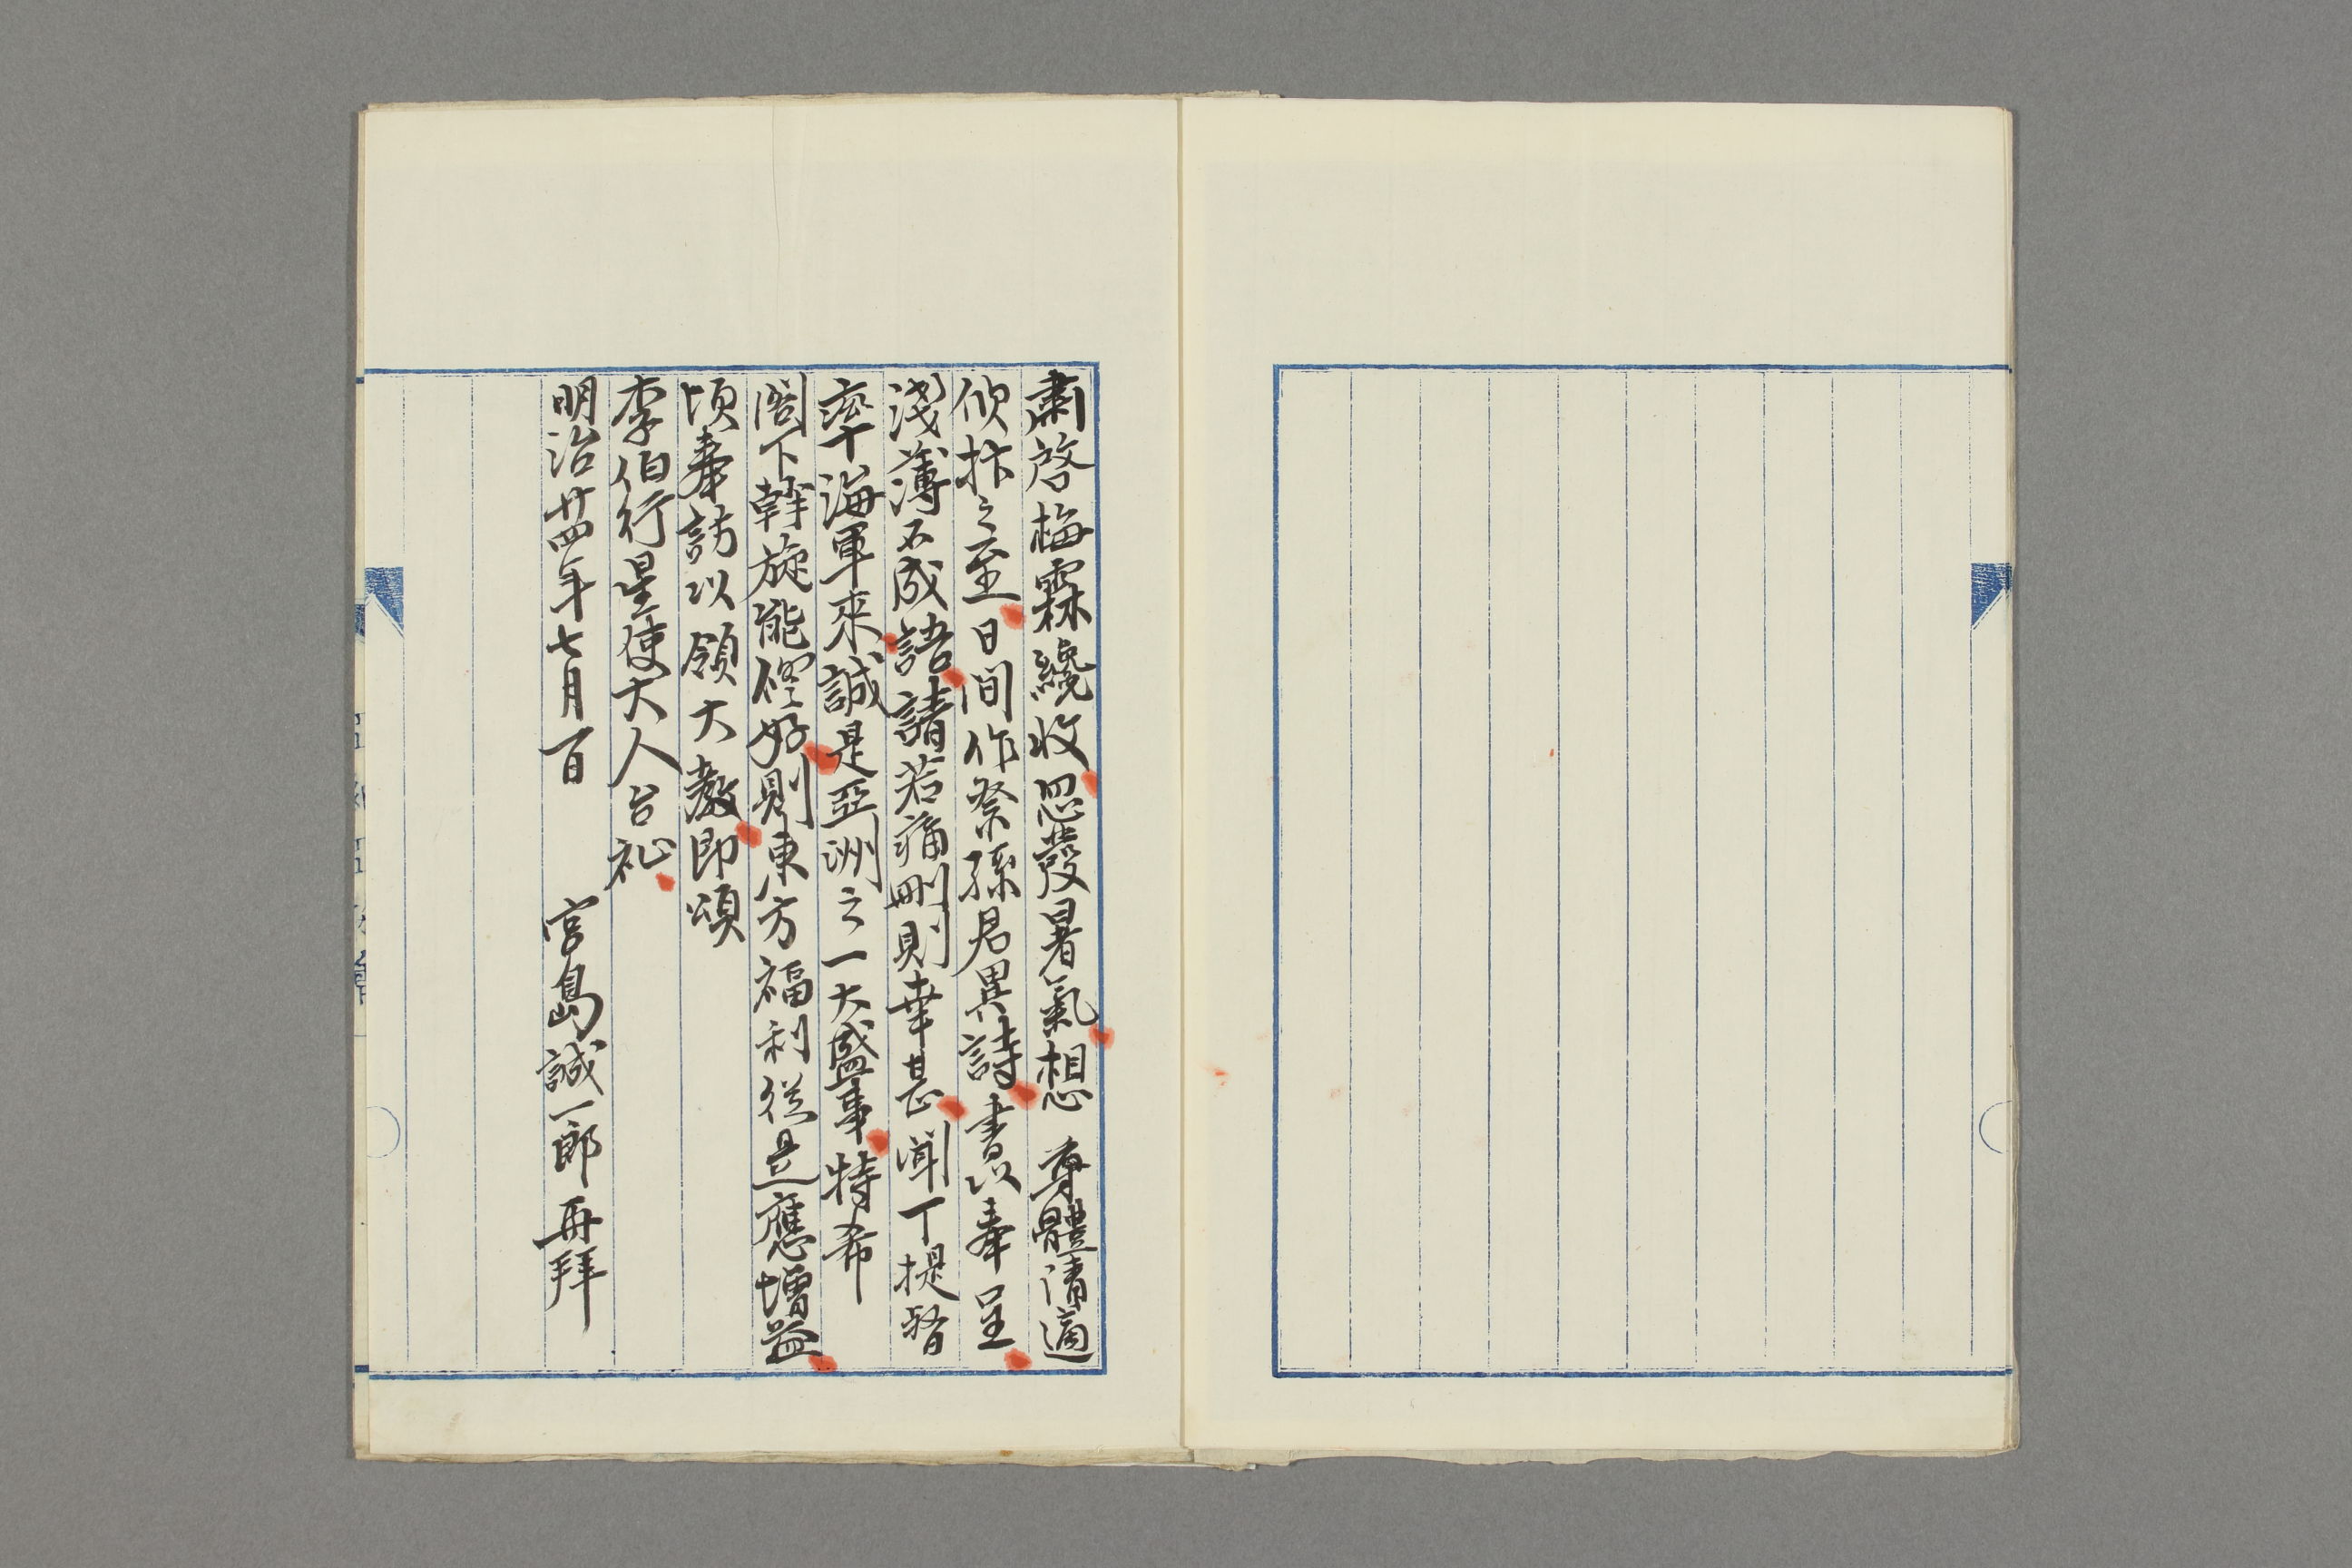 肅啓梅霖纔收忽發暑氣想　尊體清適
欣抃之至日間作祭孫君異詩書以奉呈
淺薄不成語請若痛刪則幸甚聞丁提督
率海軍來誠是亞洲之一大盛事特希
閣下斡旋能修好則東方福利從是應增益
頃奉訪以領大教即頌
李伯行星使大人台祉
明治廿四年七月一日　宮島誠一郎再拜